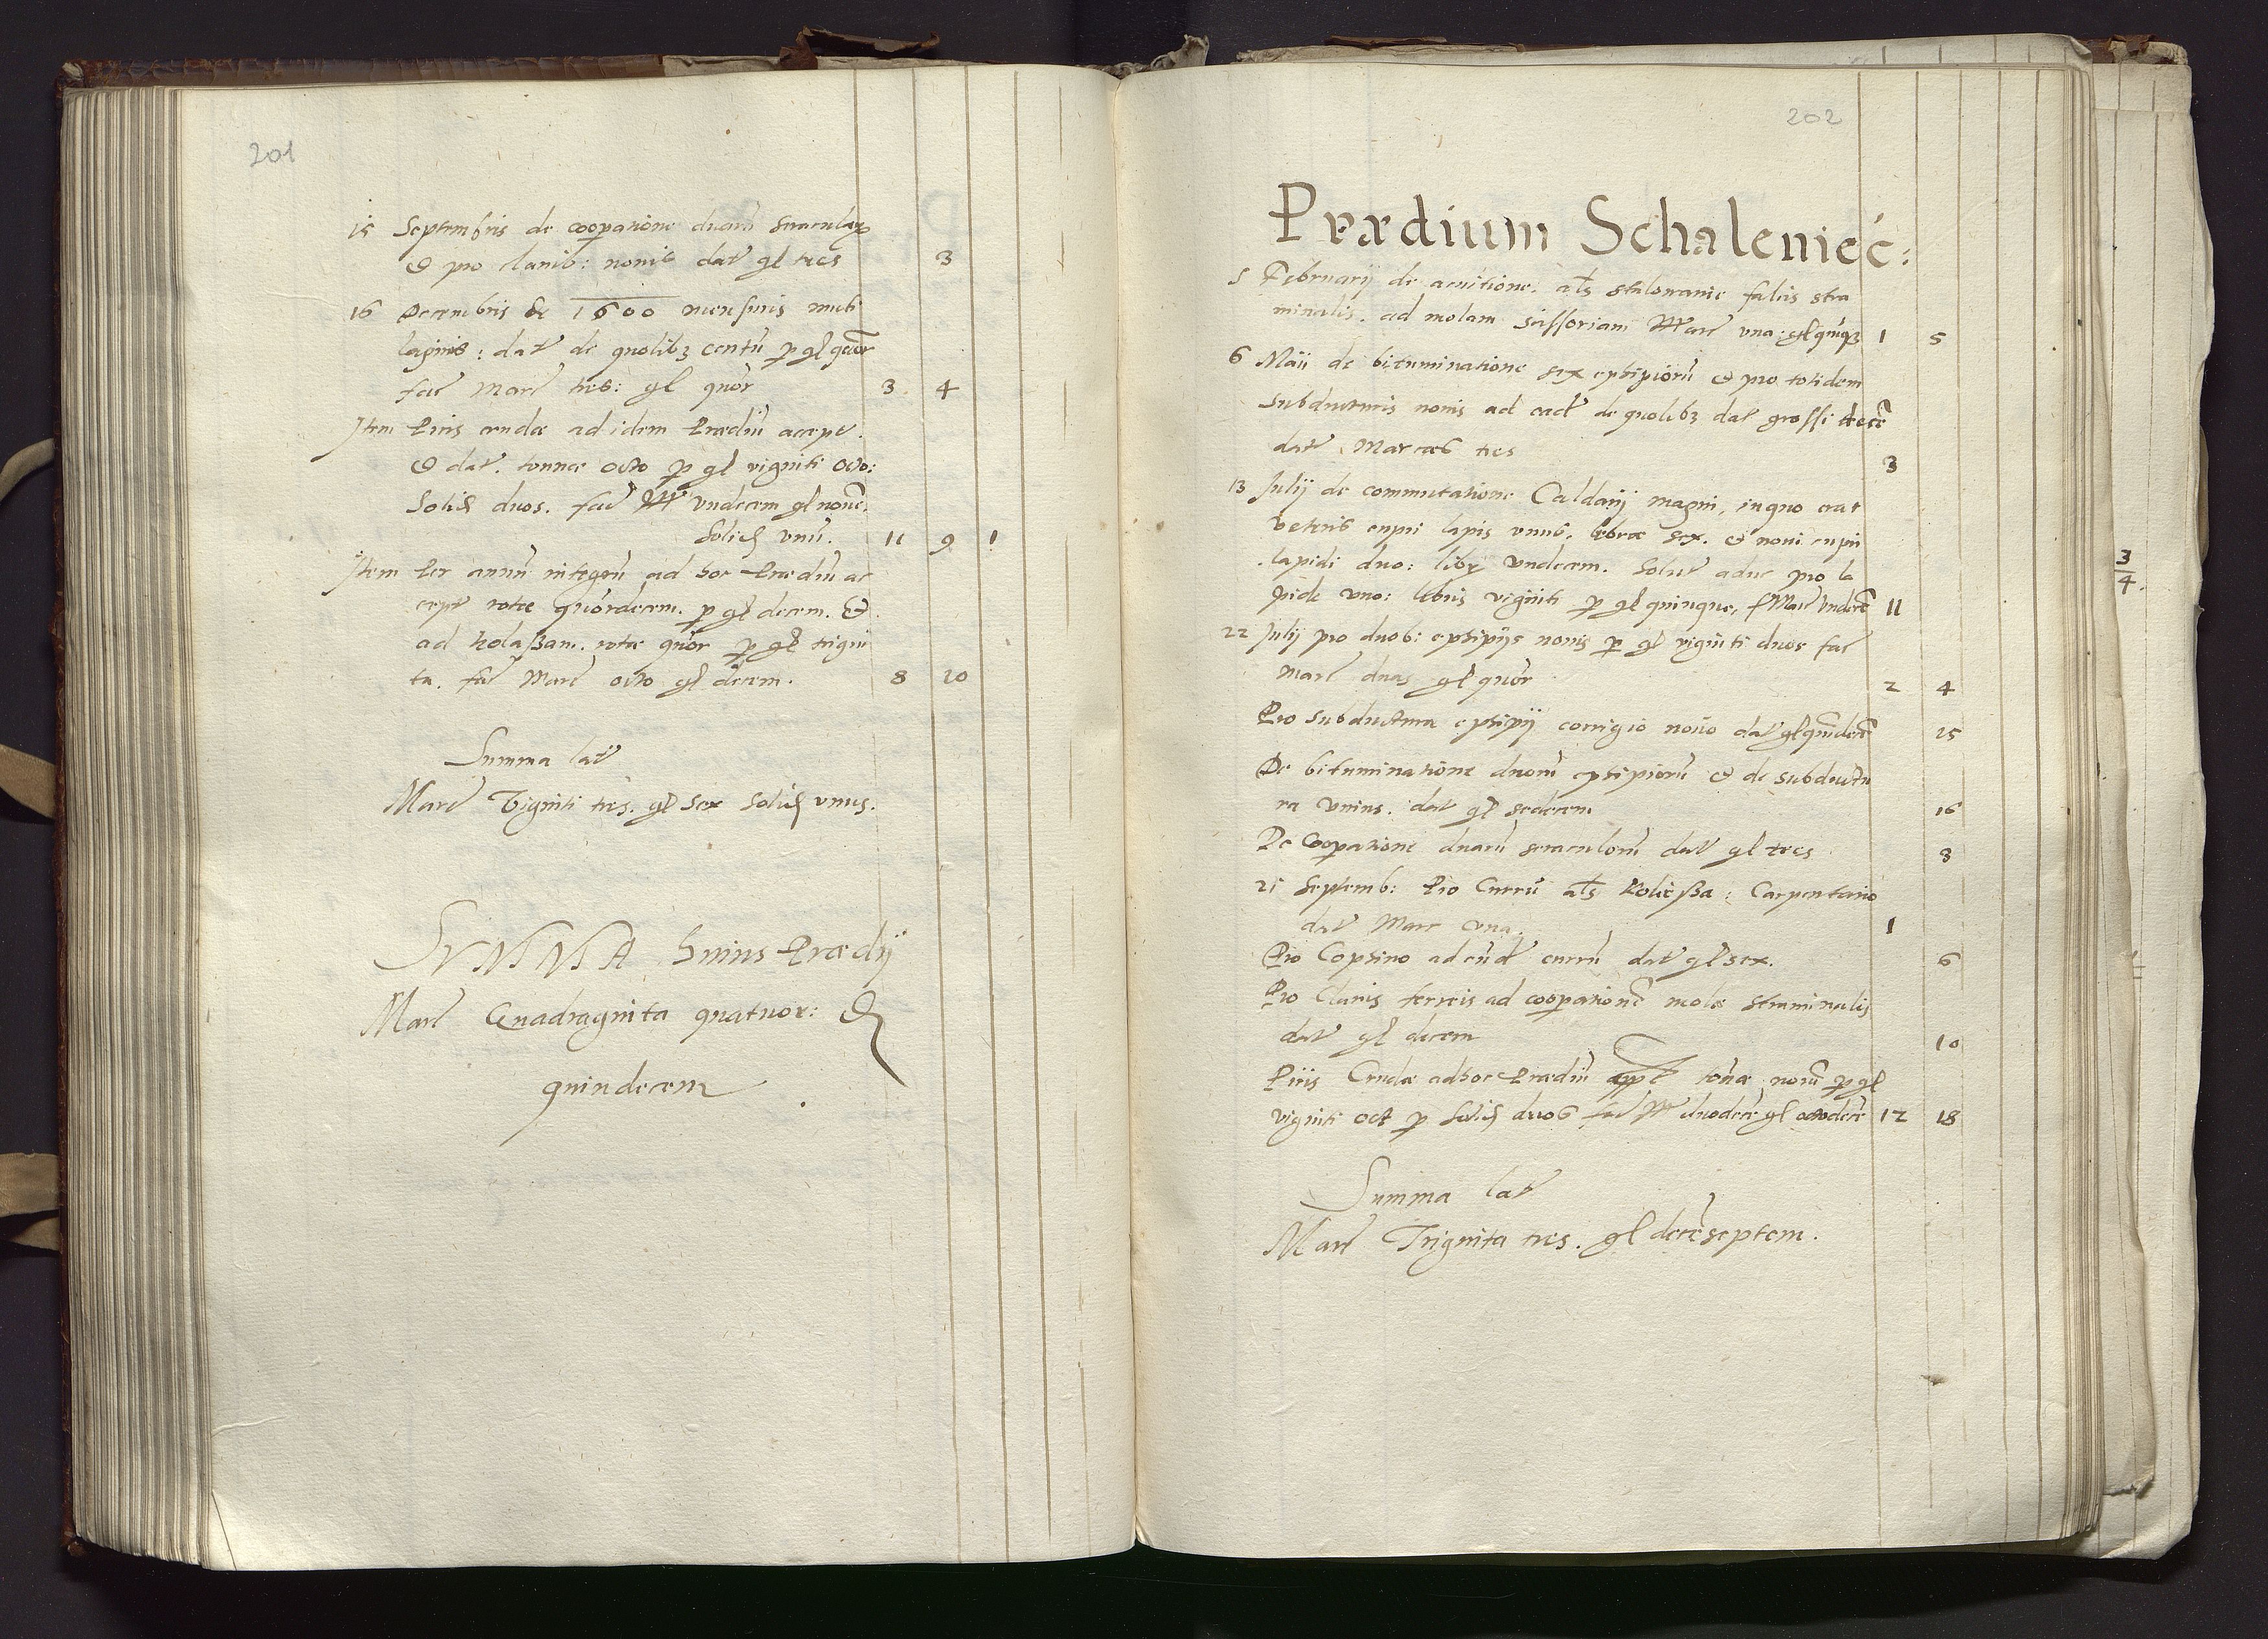 201
15 Septembris de cooperatione duarũ seracular
& pro clavib: novis dat gl tres 3
16 Decembris de 1600 mensuris muti
laginis: dat de quolibz centũ p gl quor
fac Marc tres: gl quor 3 4
Item Picis crudæ ad idem Prædiũ accept.
& dat. tonnæ octo p gl viginti octo:
Solid duos. fac M undecem gl novẽ.
Solid unũ. 11 9 1
Item Per annũ integrũ ad hoc Prædiũ ac
cept rotæ quordecem. p gl decem. &
ad kolaßam. rotæ quor p gl trigin
ta. fac Marc octo gl decem. 8 20
Summa lat
Marc Viginti tres. gl sex Solid unus.
SUMMA huius Prædij
Marc Quadraginta quatuor: &
quindecem
202
Prædium Schalenieć:
5 Februarij de acuitione. als stalowanie falcis stra
minalis. ad molam scissoriam Marc una: gl quiqz 1 5
6 Maii de bituminatione sex epsipiorũ & pro totidem
subducturis novis ad ead de quolibz dat grossi decẽ
dat Marcas tres 3
13 Julij de commutatione Caldarij magni, in quo erat
veteris cupri lapis unus, libræ sex. & novi cupri
lapidi duo: libr undecem. Solut aduc pro la
pide uno: libris viginti p gl quinque, f Marc Undecẽ 11
22 Julij pro duob: epsipijs novis p gl viginti duos fac
marc duas gl quor 2 4
Pro subductura epsipij corrigio novo dat gl quindecẽ 15
De bituminatione duorũ epsipiorũ & de subductu
ra unius. dat gl sedecem 16
De Cooperatione duarũ seraculorũ dat gl tres 3
21 Septemb: Pro Currũ als Koließa: Carpentario
dat Marc una. 1
Pro Copsino ad eũd currũ dat gl sex. 6
Pro Clavis ferreis ad cooperationẽ molæ straminalis
dat gl decem 10
Picis Crudæ ad hoc Prædiũ appt tonæ novẽ p gl
viginti oct p Solid duos fac M duodecẽ gl octodecẽ 12 18
Summa lat
Marc Triginta tres. gl decẽseptem.
3
4